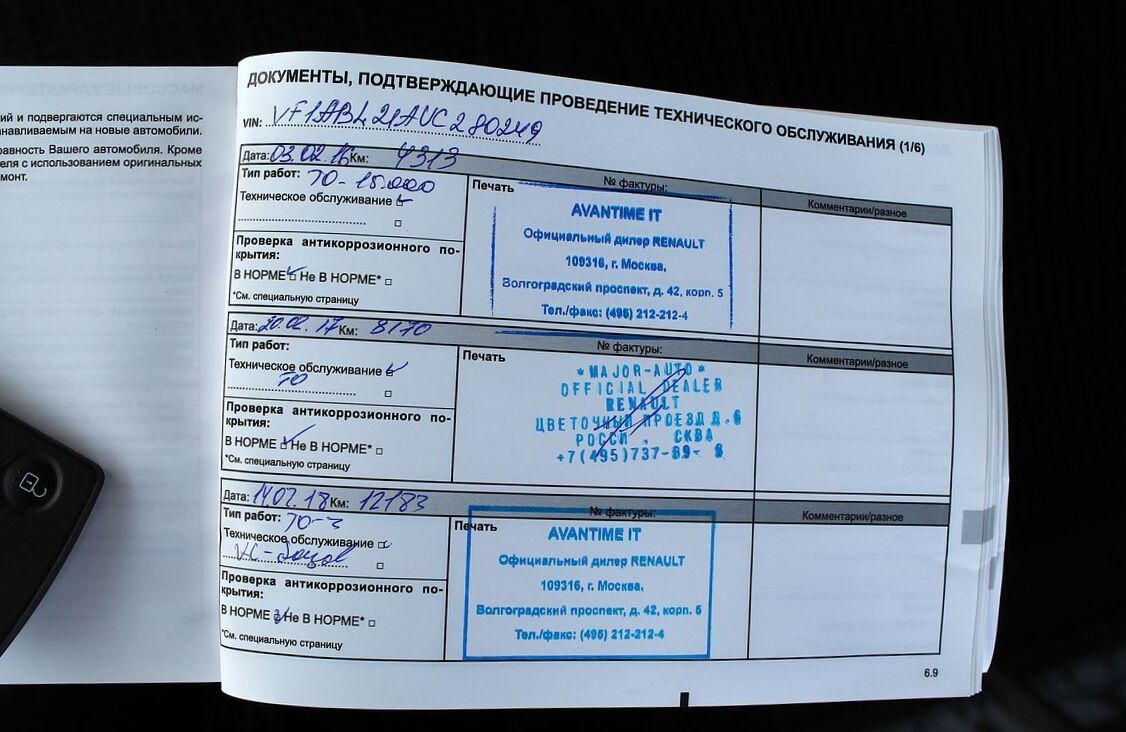 МАССОВЫЕ ХАРАКТЕРИ
ий и подвергаются специальным ис-
анавливаемым на новые автомобили.
равность Вашего автомобиля. Кроме
еля с использованием оригинальных
монт.
ДОКУМЕНТЫ, ПОДТВЕРЖДАЮЩИЕ ПРОВЕДЕНИЕ ТЕХНИЧЕСКОГО ОБСЛУЖИВАНИЯ (1/6)
VIN: VF1ABL21AUC280249
Дата: 03.02.16 Км: 4313
№ фактуры:
Тип работ: ТО-15.000
Техническое обслуживание
Проверка антикоррозионного по-
крытия:
В НОРМЕ Не В НОРМЕ*
*См. специальную страницу
Печать
AVANTIME IT
Официальный дилер RENAULT
109316, г. Москва,
Волгоградский проспект, д. 42, корп. 5
Тел./факс: (495) 212-212-4
Комментарии/разное
Дата: 20.02.17 Км: 8170
№ фактуры:
Тип работ:
Техническое обслуживание
ТО
Проверка антикоррозионного по-
крытия:
В НОРМЕ Не В НОРМЕ*
*См. специальную страницу
Печать
*MAJOR-AUTO*
OFFICIAL DEALER
RENAULT
ЦВЕТОЧНЫЙ ПРОЕЗД Д.6
РОССИ , СКВА
+7(495)737-89- 8
Комментарии/разное
Дата: 14.02.18 Км: 12183
№ фактуры:
Тип работ: ТО-3
Техническое обслуживание
Проверка антикоррозионного по-
крытия:
В НОРМЕ Не В НОРМЕ*
*См. специальную страницу
Печать
AVANTIME IT
Официальный дилер RENAULT
109316, г. Москва,
Волгоградский проспект, д. 42, корп. 5
Тел./факс: (495) 212-212-4
Комментарии/разное
6.9